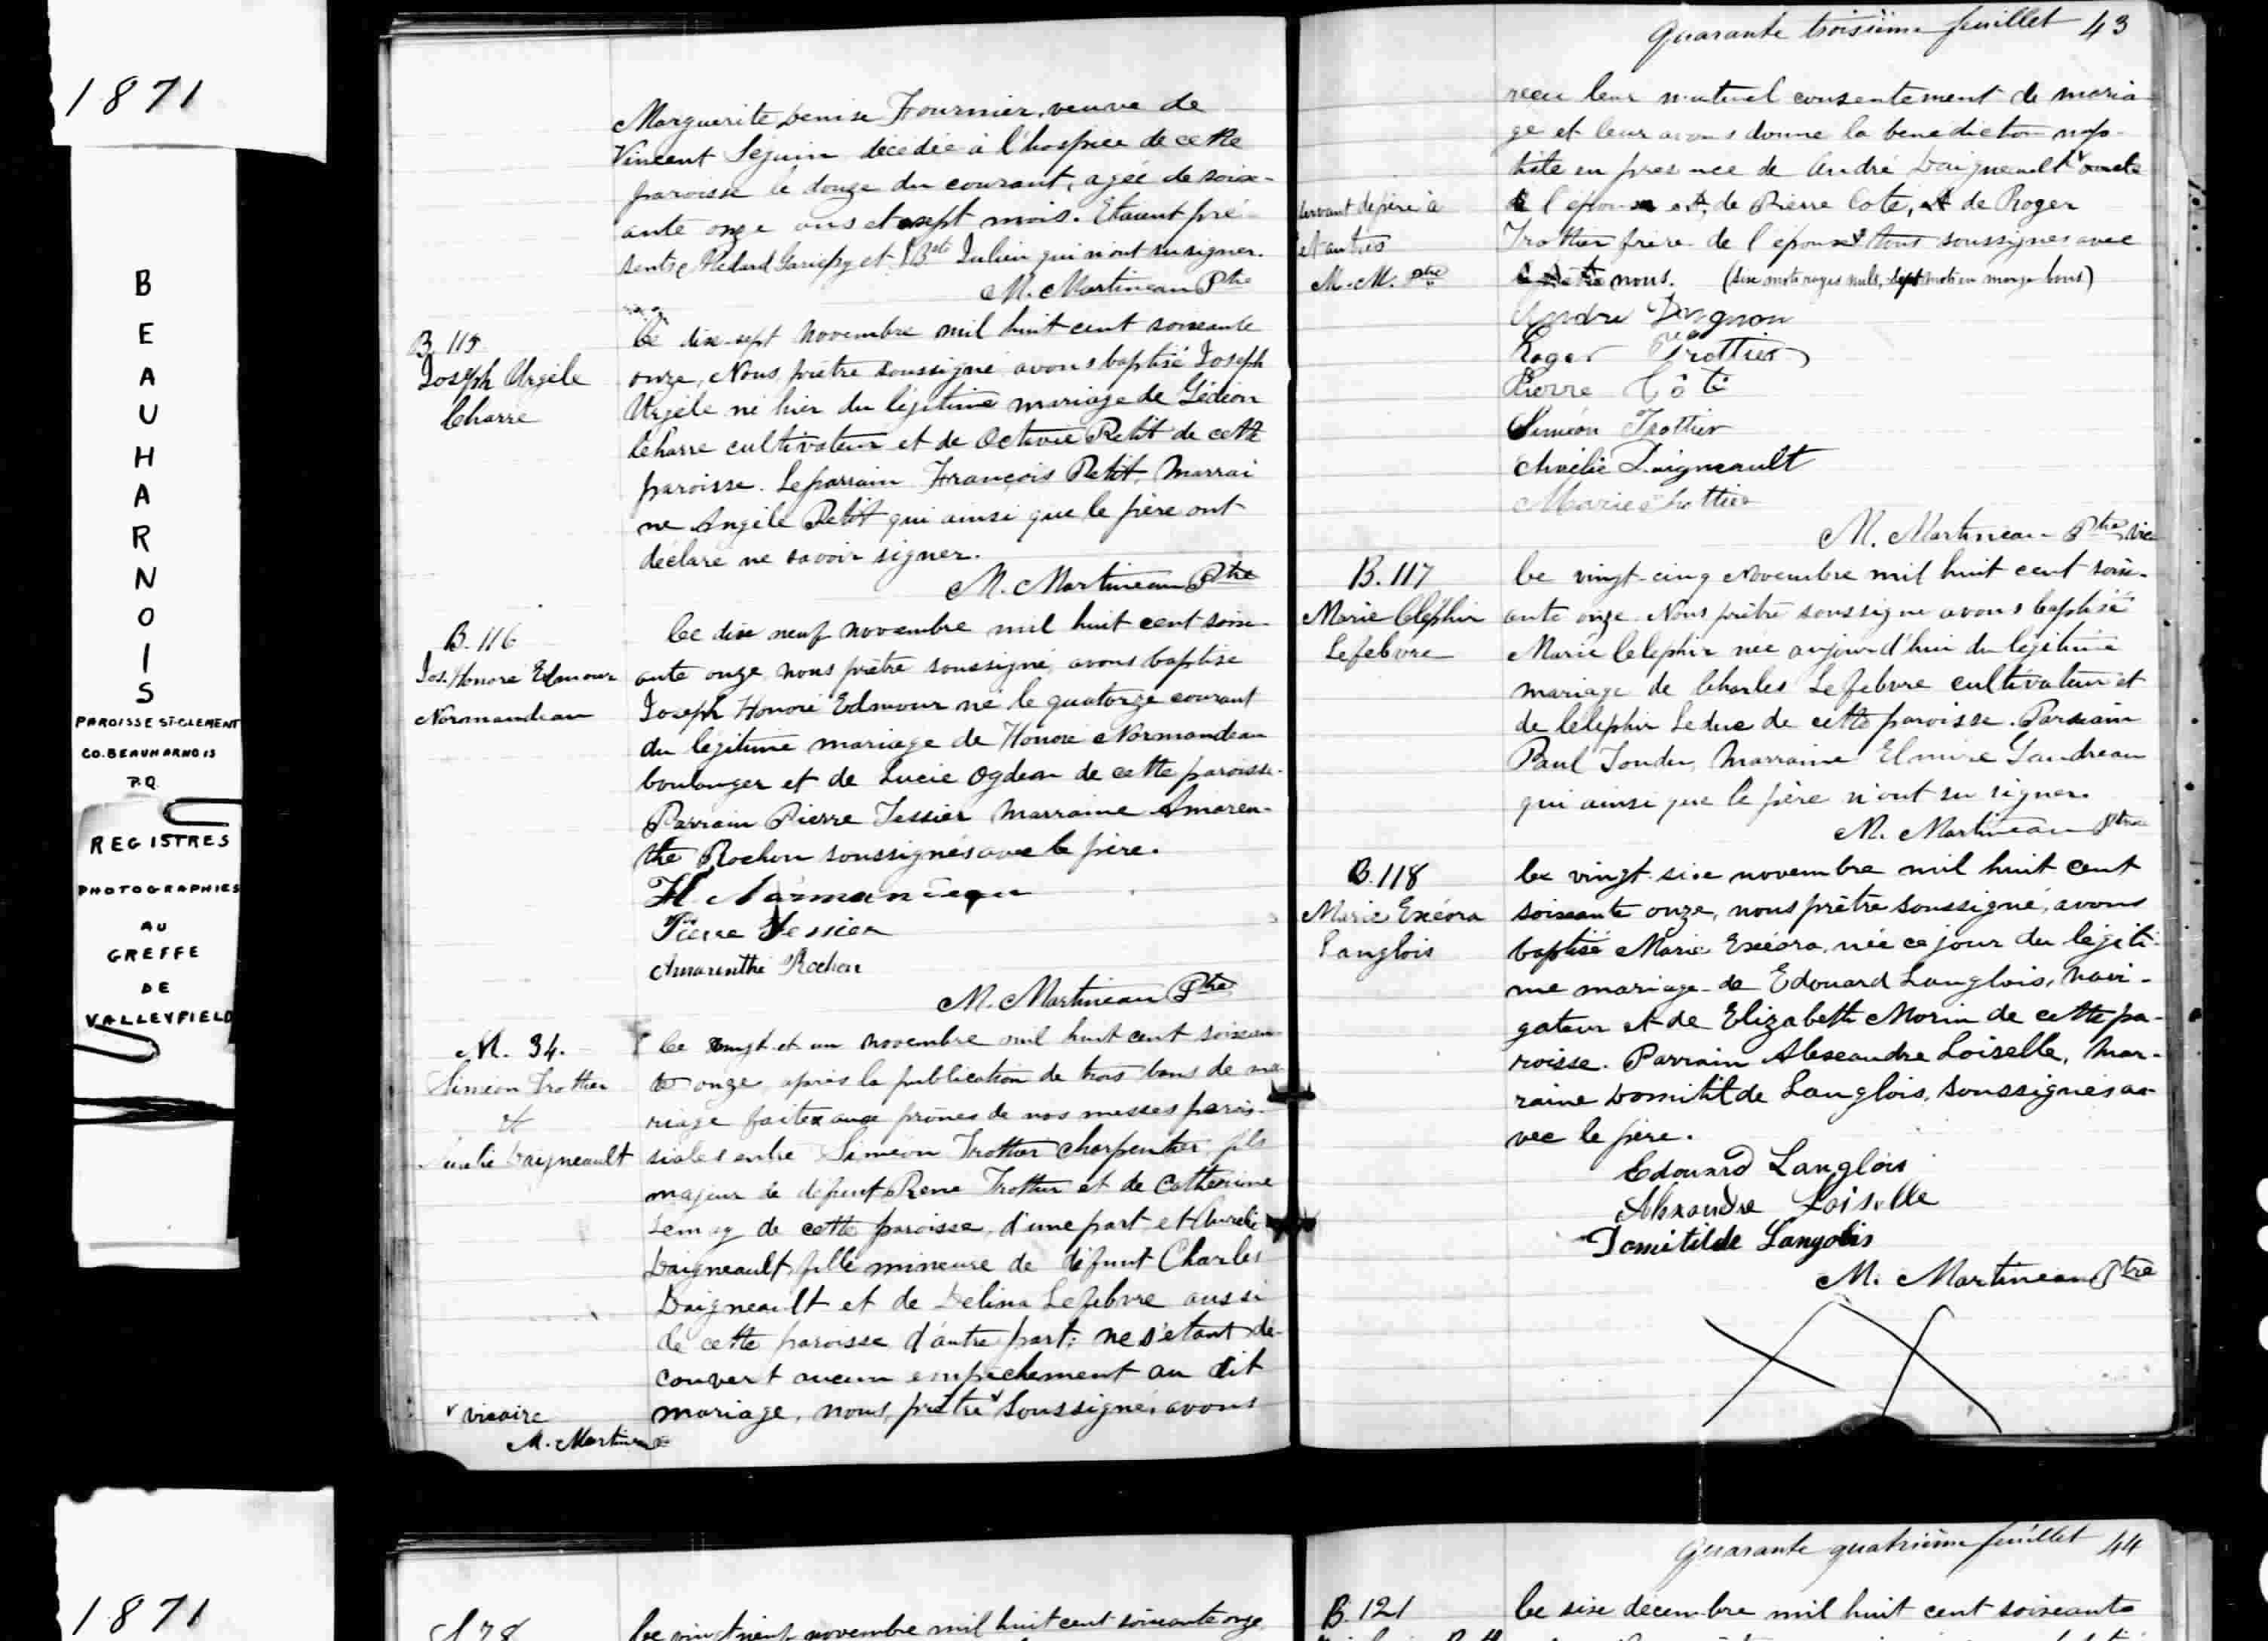 1871
BEAUHARNOIS
PAROISSE ST-CLEMENT
CO. BEAUHARNOIS
P.Q.
REGISTRES
PHOTOGRAPHIES
AU
GREFFE
DE
VALLEYFIELD
Marguerite Denise Fournier, veuve de
Vincent Seguin décédée à l'hospice de cette
paroisse le douze du courant, agée de soix-
ante onze ans et sept mois. Etaient pré-
sents Médard Gariepy et J. Bte Julien qui n'ont su signer.
M. Martineau Ptre
B. 115
Joseph Urgèle
Charre
Ce dix-sept Novembre mil huit cent soixante
onze, Nous prêtre soussigné avons baptisé Joseph
Urgèle né hier du légitime mariage de Gédéon
Charre cultivateur et de Octavie Petit de cette
paroisse. Le parrain François Petit, Marrai
ne Angèle Petit qui ainsi que le père ont
déclaré ne savoir signer.
M. Martineau Ptre
B. 116
Jos. Honoré Edmour
Normandeau
Ce dix neuf novembre mil huit cent soix-
ante onze, nous prêtre soussigné avons baptisé
Joseph Honoré Edmour né le quatorze courant
du légitime mariage de Honoré Normandeau
boulanger et de Lucie Ogdean de cette paroisse.
Parrain Pierre Tessier Marraine Amaren-
the Rochon soussignés avec le père.
H Normandeau
Pierre Tessier
Amarinthe Rochon
M. Martineau Ptre
M. 34.
Siméon Trottier
et
Aurélie Daigneault
Ce vingt et un novembre mil huit cent soixan
te onze, après la publication de trois bans de ma
riage faites aux prônes de nos messes parois-
siales entre Siméon Trottier charpentier, fils
majeur de défunt René Trottier et de Catherine
Lemay de cette paroisse, d'une part et Aurélie
Daigneault, fille mineure de défunt Charles
Daigneault et de Delina Lefebvre aussi
de cette paroisse d'autre part: ne s'étant dé-
couvert aucun empêchement au dit
mariage, nous, prêtre v soussigné, avons
v vicaire
M. Martineau
Quarante troisième feuillet 43
reçu leur mutuel consentement de maria
ge et leur avons donné la bénédiction nup-
tiale en présence de André Daigneault v oncle
de l'épouse et, de Pierre Coté, et de Roger
Trottier frère de l'époux v tous soussignés avec
nous. (dix mots rayés nuls, sept mots en marge bons)
servant de père à
et autres
M. M. Ptre
Andre Dagnau
Roger Trottier
Pierre Côté
Siméon Trottier
Aurélie Daigneault
Marie Trottier
M. Martineau Ptre vic
B. 117
Marie Céléphir
Lefebvre
Ce vingt-cinq Novembre mil huit cent soix-
ante onze. Nous prêtre soussigné avons baptisé
Marie Céléphir née aujourd'hui du légitime
mariage de Charles Lefebvre cultivateur et
de Céléphir Leduc de cette paroisse. Parrain
Paul Marraine Elmire Gaudreau
qui ainsi que le père n'ont su signer.
M. Martineau Ptre
B. 118
Marie Exéora
Langlois
Ce vingt-six novembre mil huit cent
soixante onze, nous prêtre soussigné, avons
baptisé Marie Exéora, née ce jour du légiti-
me mariage de Edouard Langlois, navi-
gateur et de Elizabeth Morin de cette pa-
roisse. Parrain Alexandre Loiselle, Mar-
raine Domitilde Langlois, soussignés a-
vec le père.
Edouard Langlois
Alexandre Loiselle
Domitilde Langolis
M. Martineau Ptre
1871
Quarante quatrième feuillet 44
S 78
Ce vingt neuf novembre mil huit cent soixante onze
B. 121
Ce six décembre mil huit cent soixante